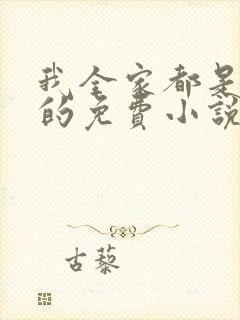 我全家都是
的免費小說
古藜